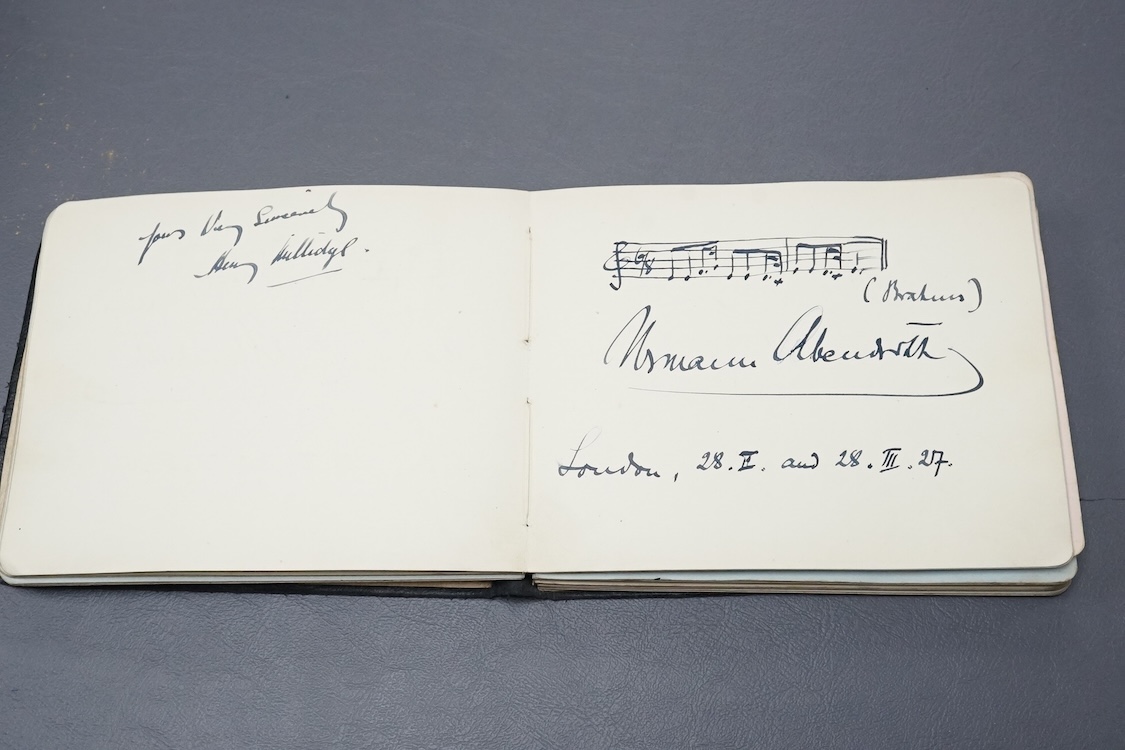 Yours Very Sincerely
Henry
6/8
(Brahms)
Hermann Abendroth
London, 28. II. and 28. III. 27.